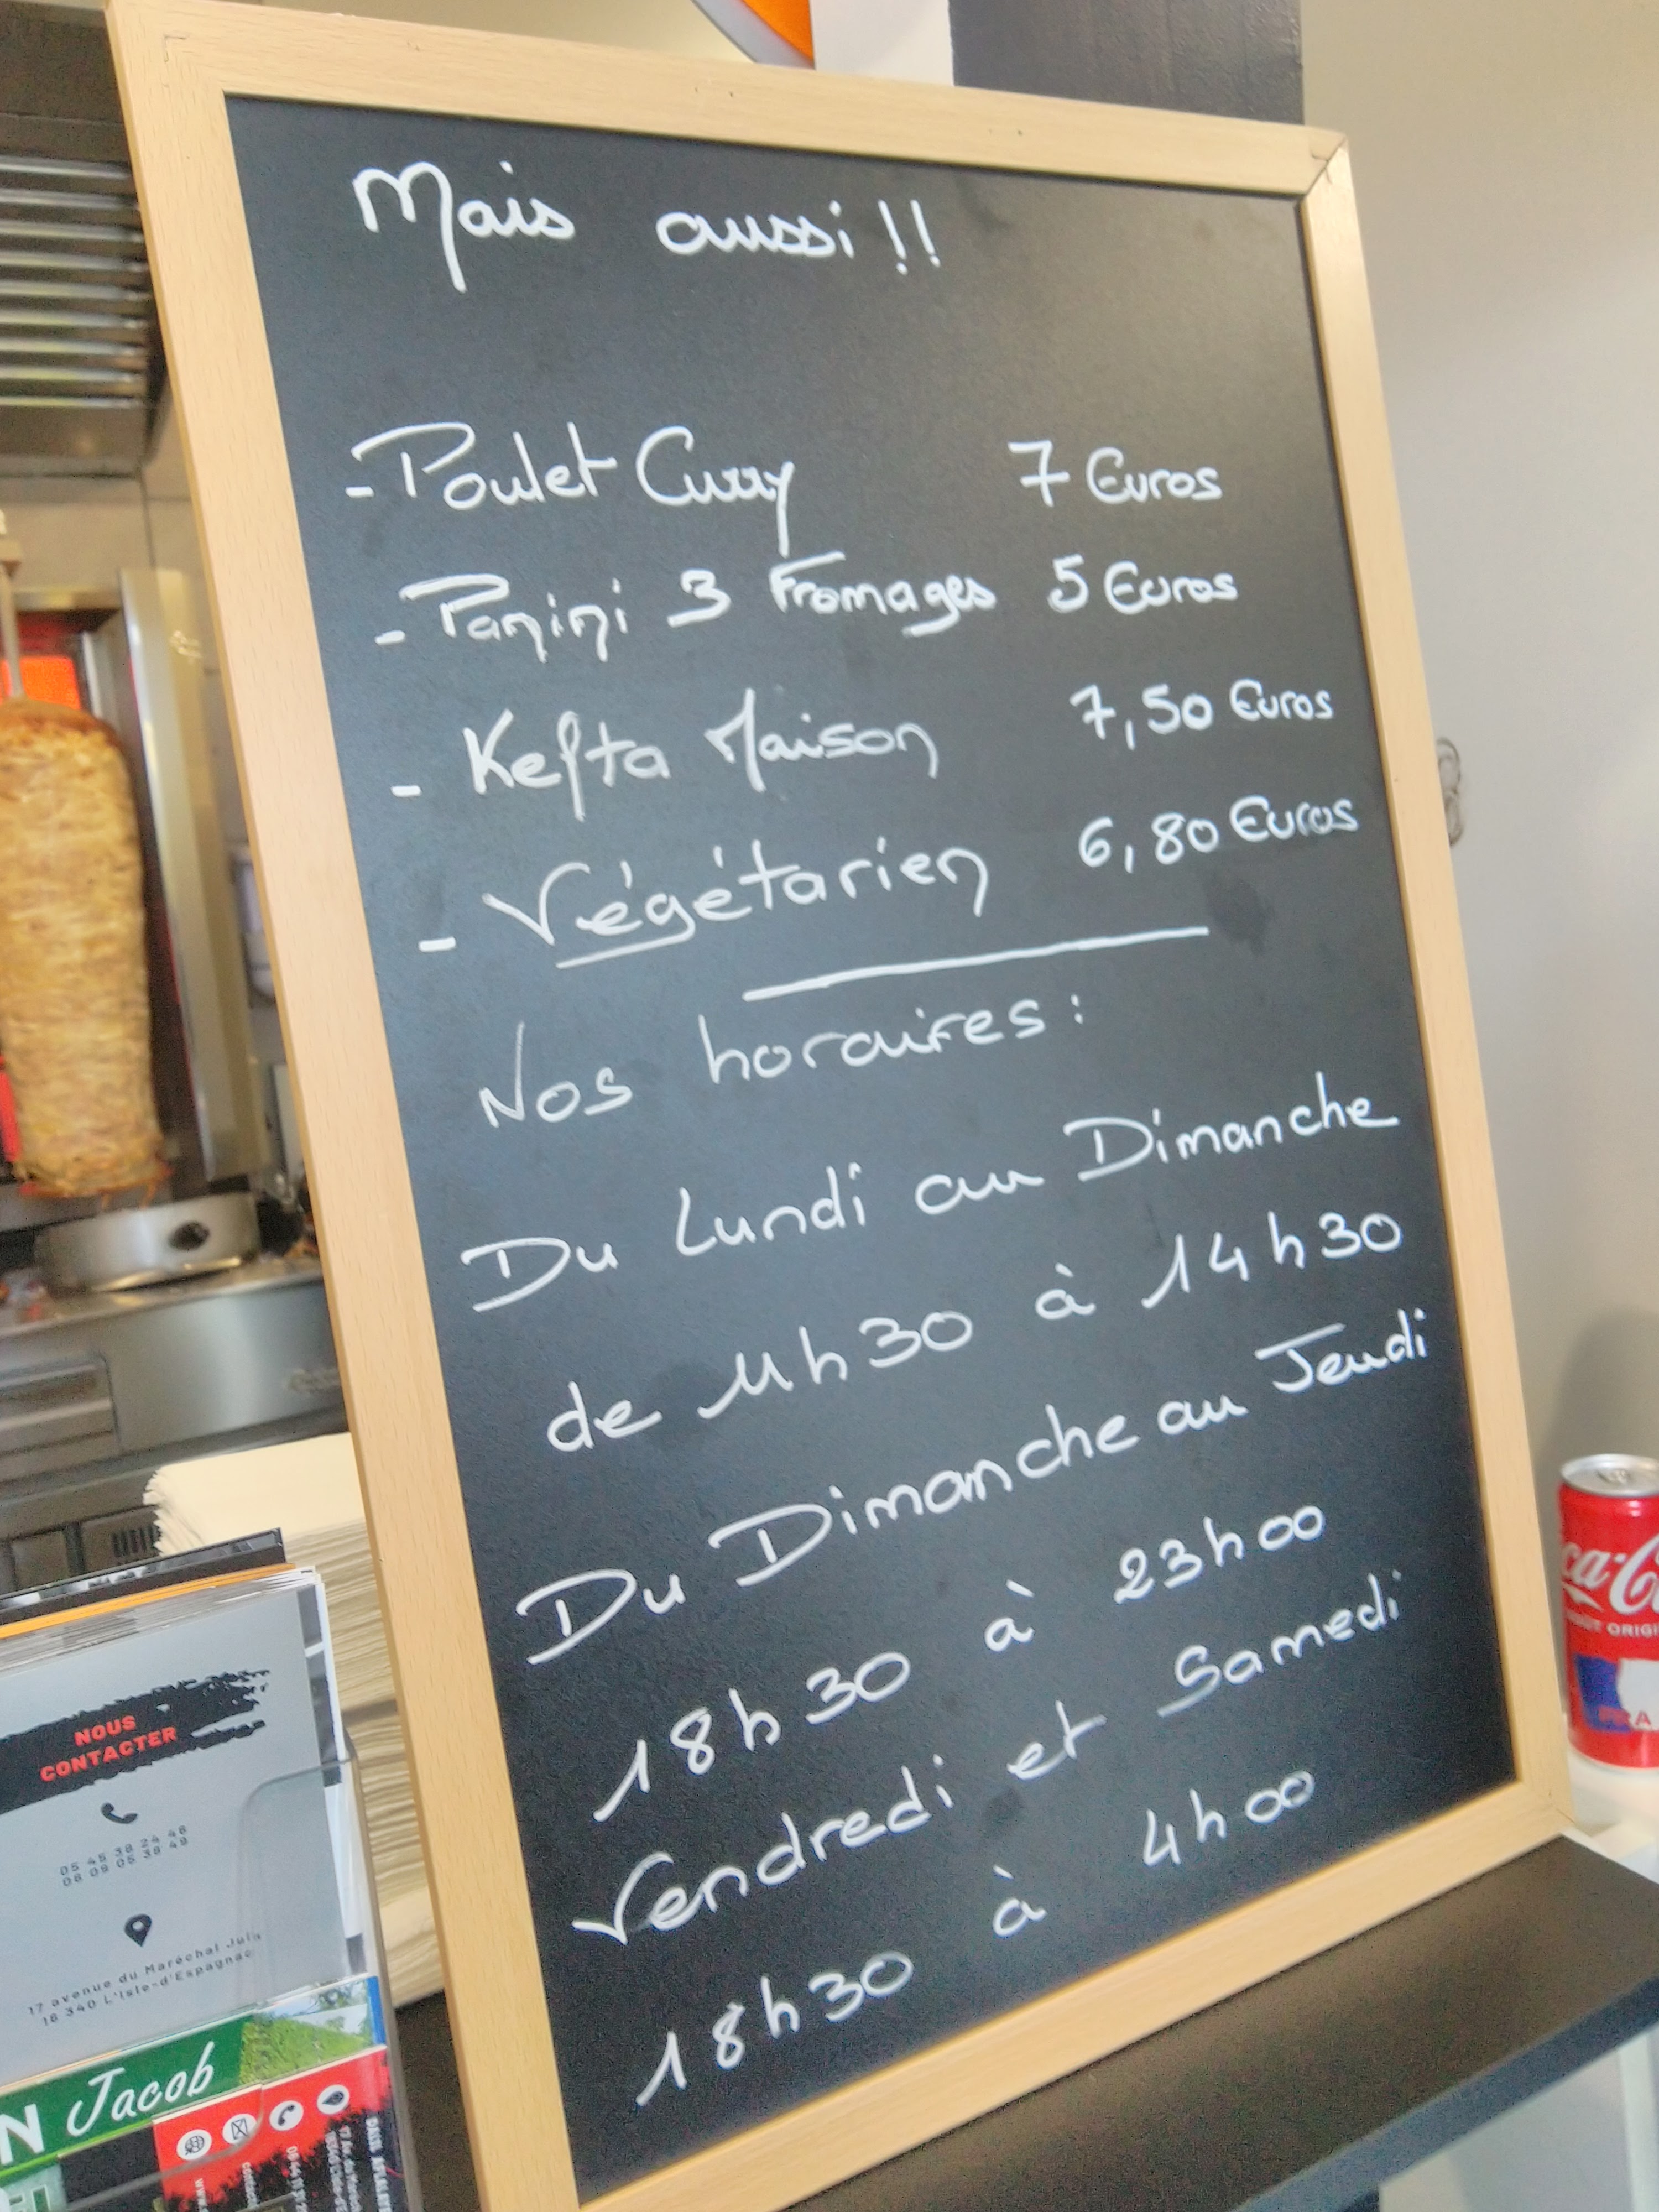 Mais aussi !!
- Poulet Curry 7 Euros
- Panini 3 Fromages 5 Euros
- Kefta Maison 7,50 Euros
- Végétarien 6,80 Euros
Nos horaires :
Du Lundi au Dimanche
de 11h30 à 14h30
Du Dimanche au Jeudi
18h30 à 23h00
Vendredi et Samedi
18h30 à 4h00
NOUS
CONTACTER
05 45 38 24 46
17 avenue du Maréchal Juin
16 340 L'Isle-d'Espagnac
N Jacob
ca-C
ORIGI